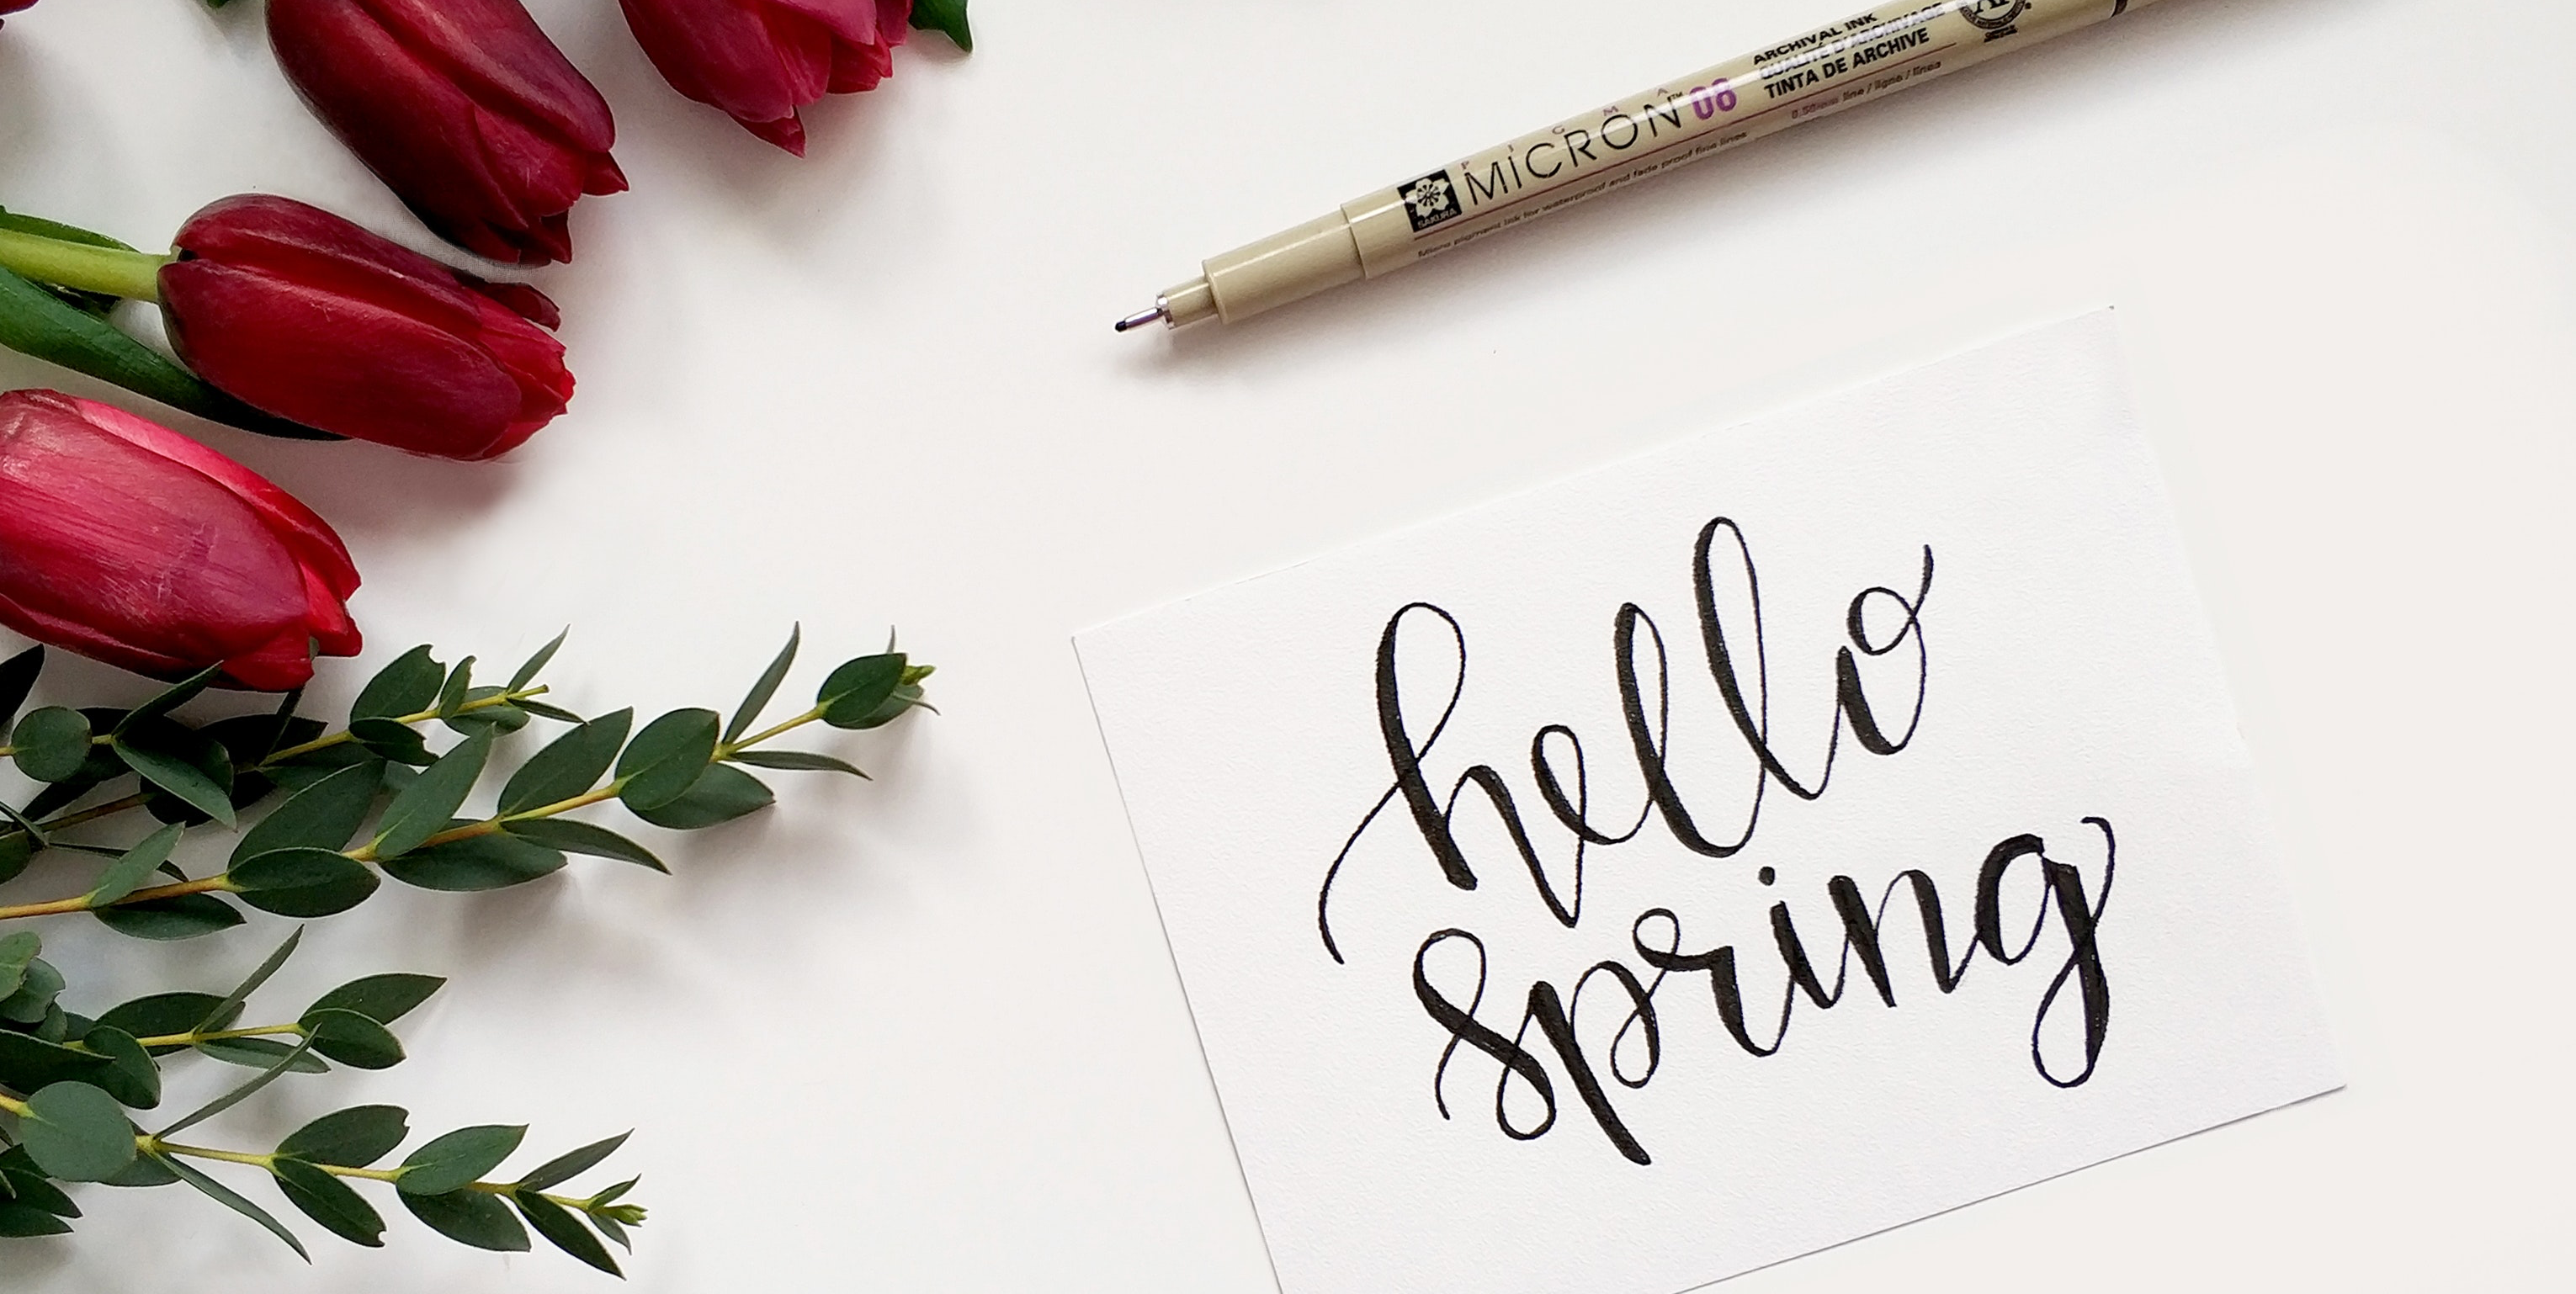 ARCHIVAL INK
QUALITÉ D'ARCHIVAGE
TINTA DE ARCHIVE
PIGMA
MICRON™ 08
0.50mm line / ligne / línea
SAKURA
Micro pigment ink for waterproof and fade proof fine lines
hello
spring